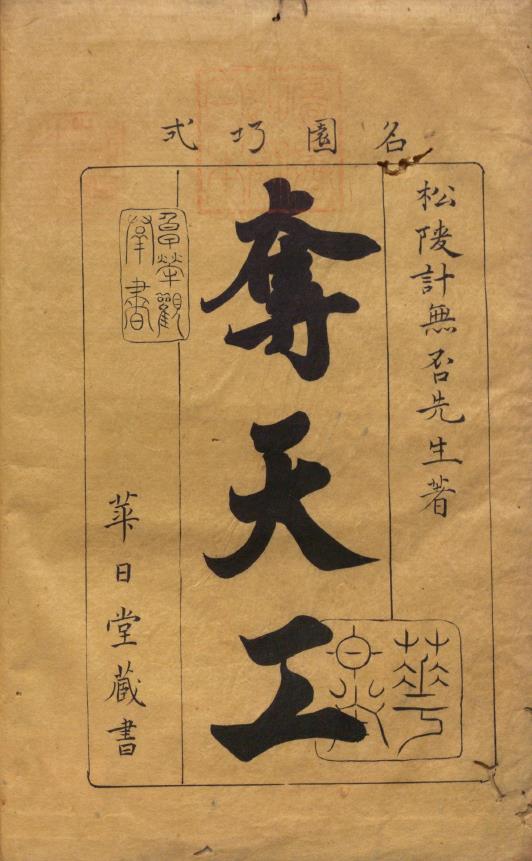 名園巧式
松陵計無否先生著
奪天工
華日堂蔵書